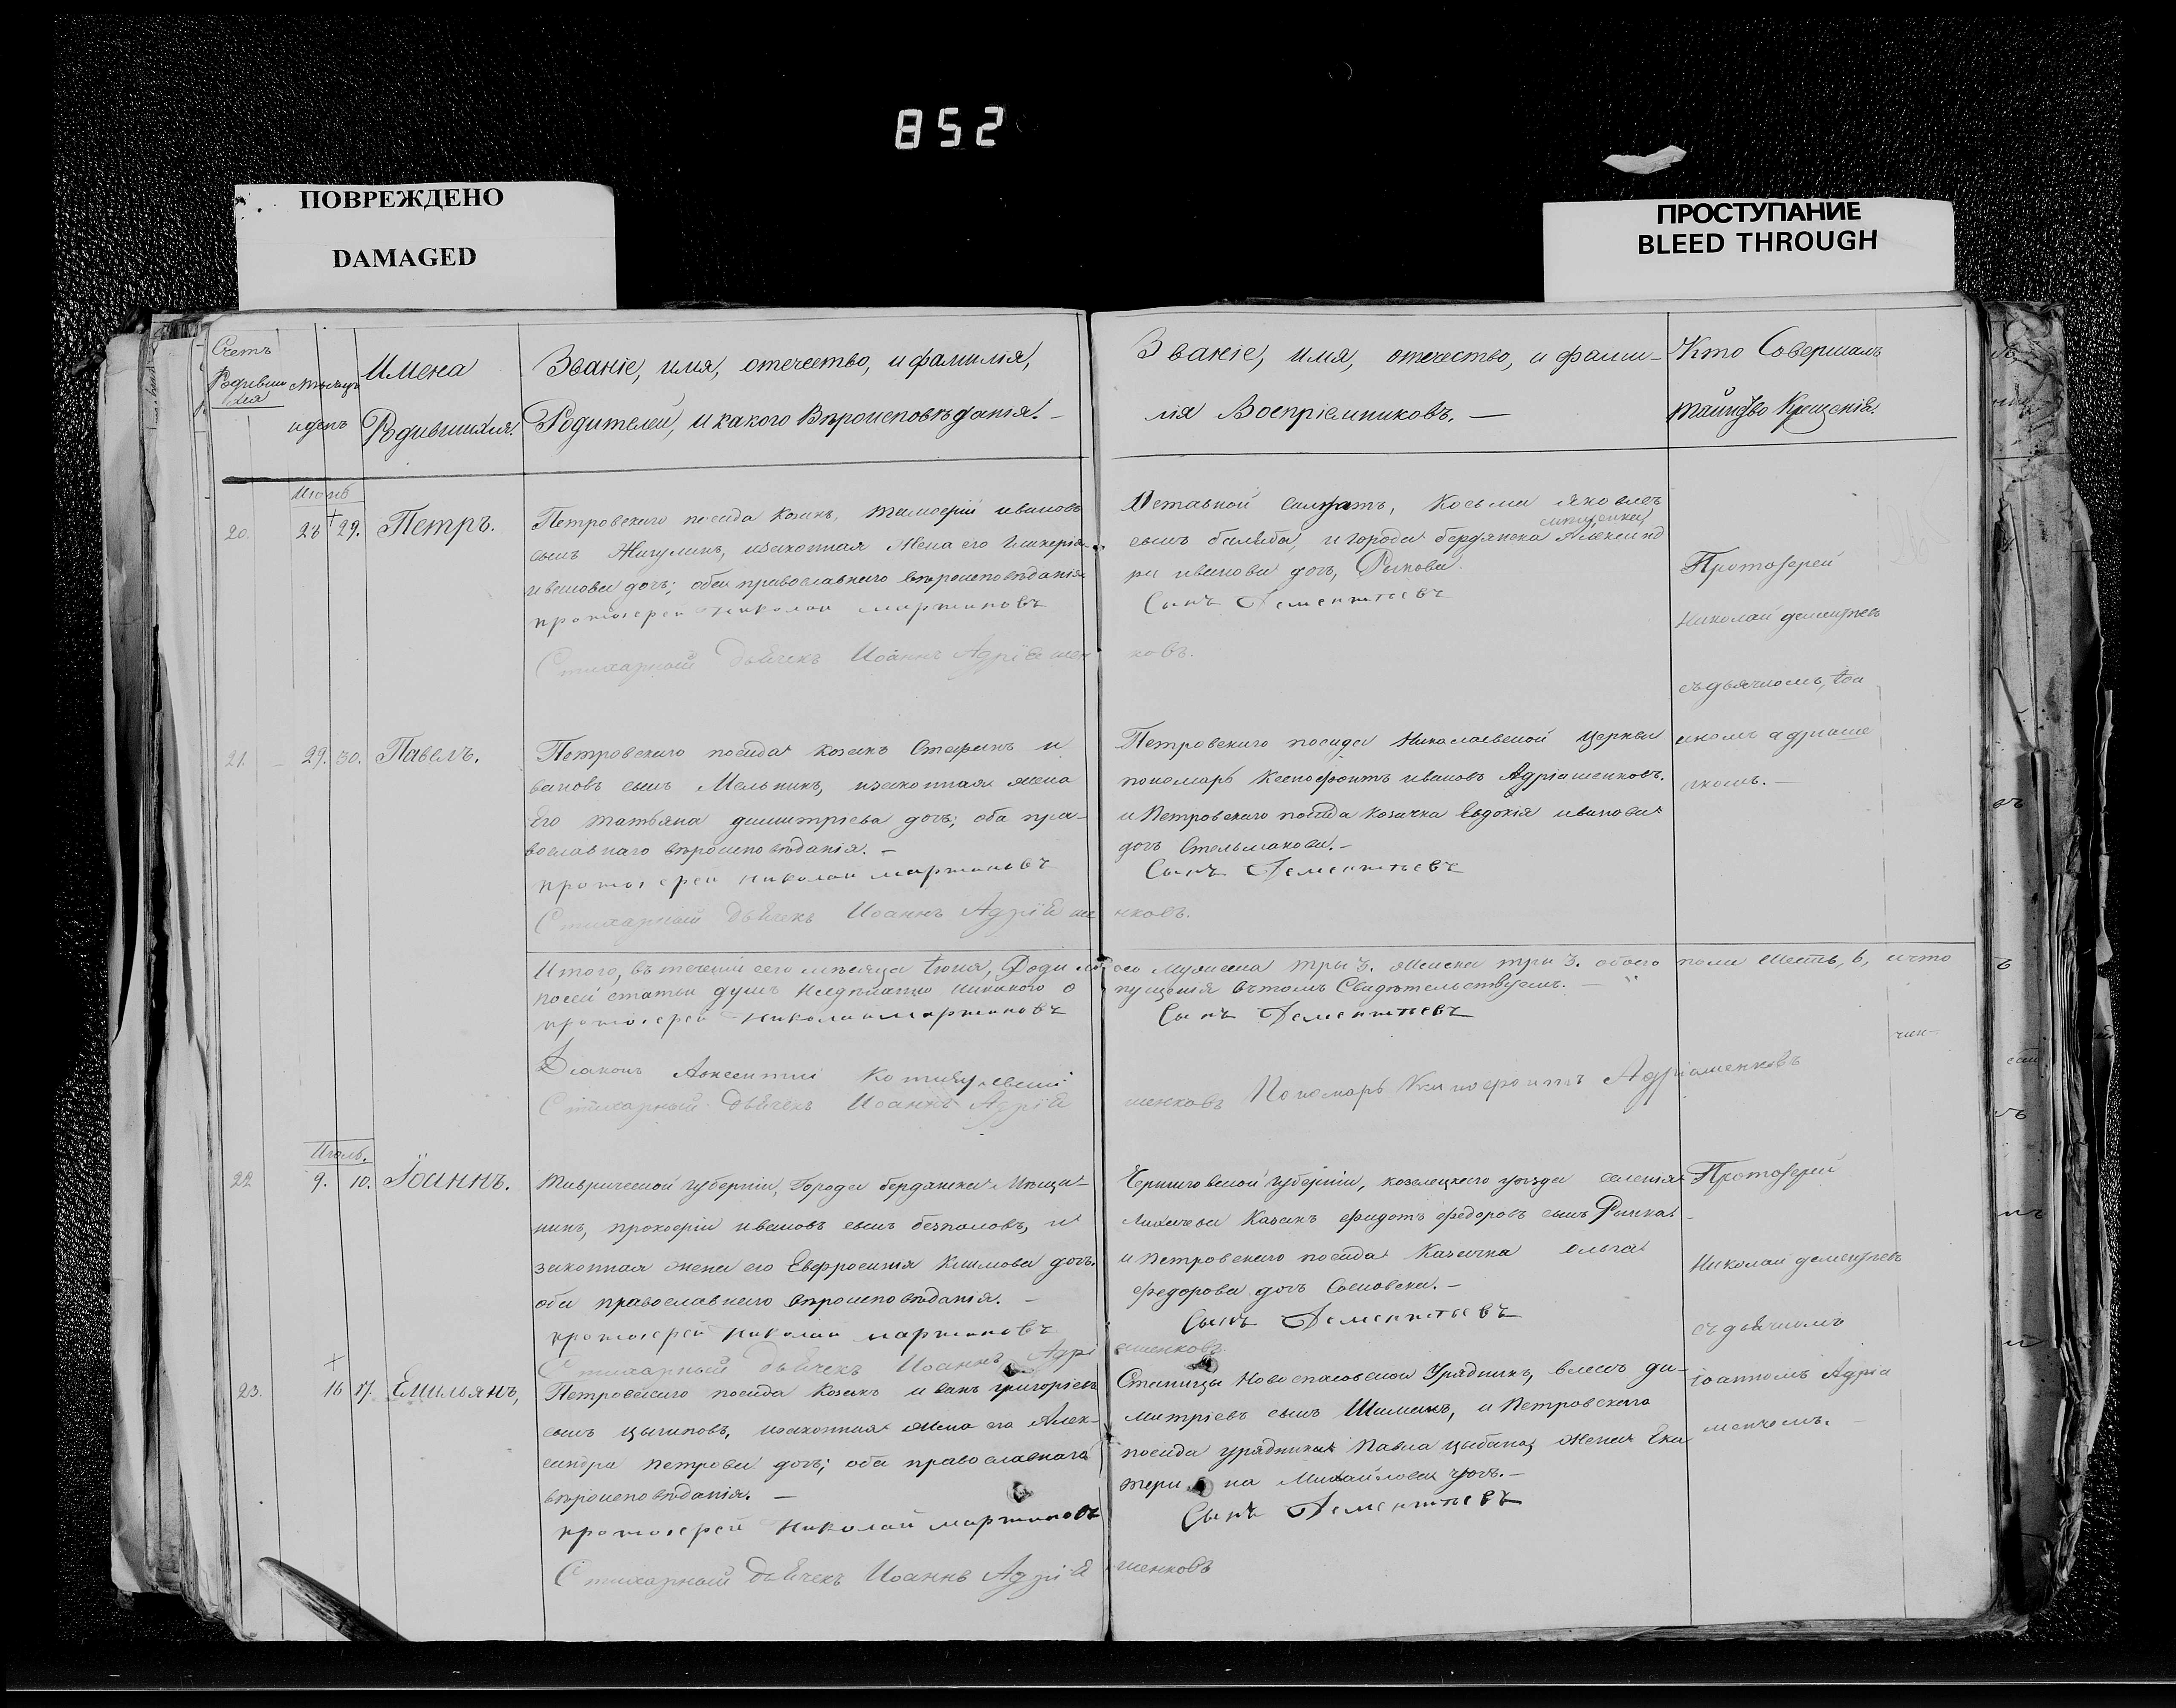 852
ПОВРЕЖДЕНО
DAMAGED
ПРОСТУПАНИЕ
BLEED THROUGH
Счетъ
Родивши
хся
мѣсяцъ
и день
Имена
Родившихся.
Званіе, имя, отечество, и фамилія,
Родителей, и какого Вѣроисповѣданія. —
Званіе, имя, отечество, и фами-
лія Воспріемниковъ. —
Кто Совершалъ
таинство Крещенія.
Июнь
20.
28 29.
Петръ.
Петровскаго посада козакъ, тимофій ивановъ
сынъ Жигулинъ, изаконная Жена его Гликерія
иванова дочъ; оба православнаго вѣроисповѣданія
протоіерей Николай мартиновъ
Стихарный дьячекъ Иоаннъ Адріяшен
Отставной салдатъ, Косьма яковлевъ
сынъ и города бердянска Александ
ра иванова дочъ, Рыкова.
Сынъ Дементиевъ
ковъ.
Протоіерей
Николай дементьевъ
съдьячкомъ, Іоа
нномъ адріяше
нкомъ. —
21.
29. 30.
Павелъ.
Петровскаго посада козакъ Стефанъ и
вановъ сынъ Мельникъ, изаконная жена
его татьяна димитріева дочъ; оба пра-
вославнаго вѣроисповѣданія. —
протоіерей николай мартиновъ
Стихарный дьячекъ Иоаннъ Адріяше
Петровскаго посада Николаевской церкви
пономарь Ксенофонтъ ивановъ Адріашенковъ.
и Петровскаго посада козачка Евдокія иванова
дочъ Стельмахова. —
Сынъ Дементиевъ
нковъ.
Итого, въ теченіи сего мѣсяца Іюня, Родило
ся Мужеска три 3. Женска три 3. обоего пола шесть, 6, ичто
посей статьи душъ никакого о
пущенія вътомъ Свидѣтельствуемъ. —
протоіерей Николай мартиновъ
Сынъ Дементиевъ
Діаконъ
Стихарный дьячекъ Иоаннъ Адрія
шенковъ Пономарь Ксенофонтъ Адріашенковъ
Июль.
22
9. 10.
Іоаннъ.
таврической губерніи, Города бердянска Мѣща-
нинъ, прокофій ивановъ сынъ безпаловъ, и
законная жена его Евфросинія Климова дочъ.
оба православнаго вѣроисповѣданія. —
протоіерей николай мартиновъ
Стихарный дьячекъ Иоаннъ Адрі
Черниговской губерніи, козелецкаго уѣзда селенія
Казакъ федотъ федоровъ сынъ Рычка
и петровскаго посада Казачка ольга
федорова дочъ Сосновска. —
Сынъ Дементиевъ
яшенковъ.
Протоіерей
Николай дементьевъ
съдьячкомъ
іоанномъ Адріа
шенкомъ.
23.
16 17.
Емильянъ,
Петровскаго посада Козакъ иванъ григоріевъ
сынъ цыгановъ, изаконная Жена его Алек-
сандра петрова дочъ; оба православнаго
вѣроисповѣданія. —
протоіерей Николай мартиновъ
Стихарный дьячекъ Иоаннъ Адрія
Станицы Новоспасовской Урядникъ, власъ ди-
митріевъ сынъ Шиманъ, и Петровскаго
посада урядника Павла цыбана, Жена Ека
тери на Михайлова дочъ. —
Сынъ Дементиевъ
шенковъ